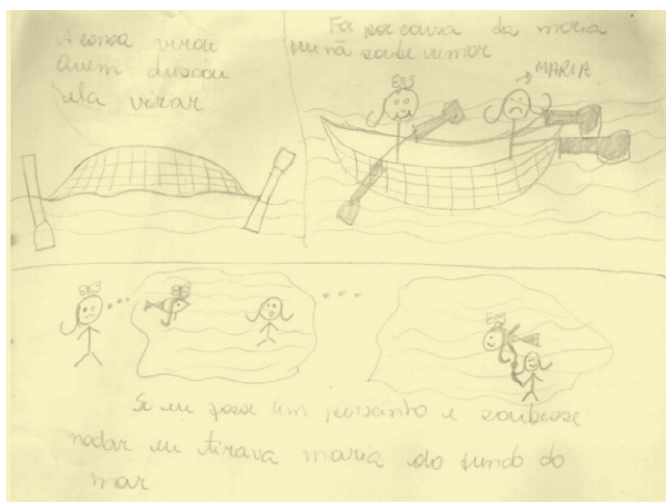 A canoa virou
Quem deixou
ela virar
Foi por causa da maria
que não soube remar
MARIA
Se eu fosse um peixinho e soubesse
nadar eu tirava maria do fundo do
mar